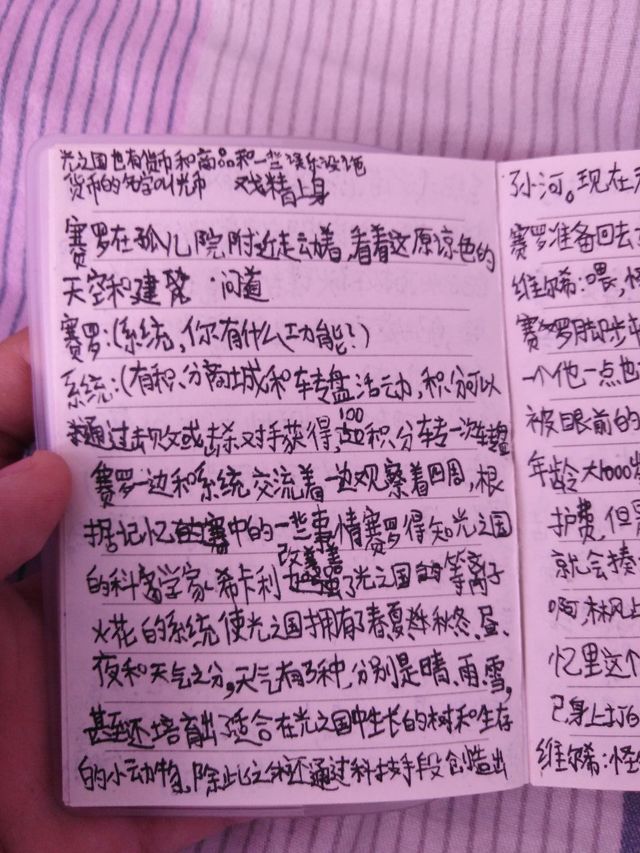 光之国也有货币和商品和一些娱乐设施
货币的名字叫光币 戏精上身
赛罗在孤儿院附近走动着,看着这原凉色的
天空和建筑 问道
赛罗:(系统,你有什么功能?)
系统:(有积分商城和转盘活动,积分可以
通过击败或击杀对手获得,100积分转一次转盘
赛罗一边和系统交流着一边观察着四周,根
据记忆中的一些事情赛罗得知光之国
的科学家希卡利改善了光之国的等离子
火花的系统使光之国拥有了春夏秋冬、昼、
夜和天气之分,天气有3种,分别是晴、雨、雪,
甚至还培育出了适合在光之国中生长的树和生存
的小动物,除此之外还通过科技手段创造出
孙河。现在
赛罗准备回去
维尔希:喂,怪
赛罗脚步
一个他一点也
被眼前的
年龄大1000岁
护费,但
就会揍
啊,林风
忆里这个
己身上打的
维尔希:怪